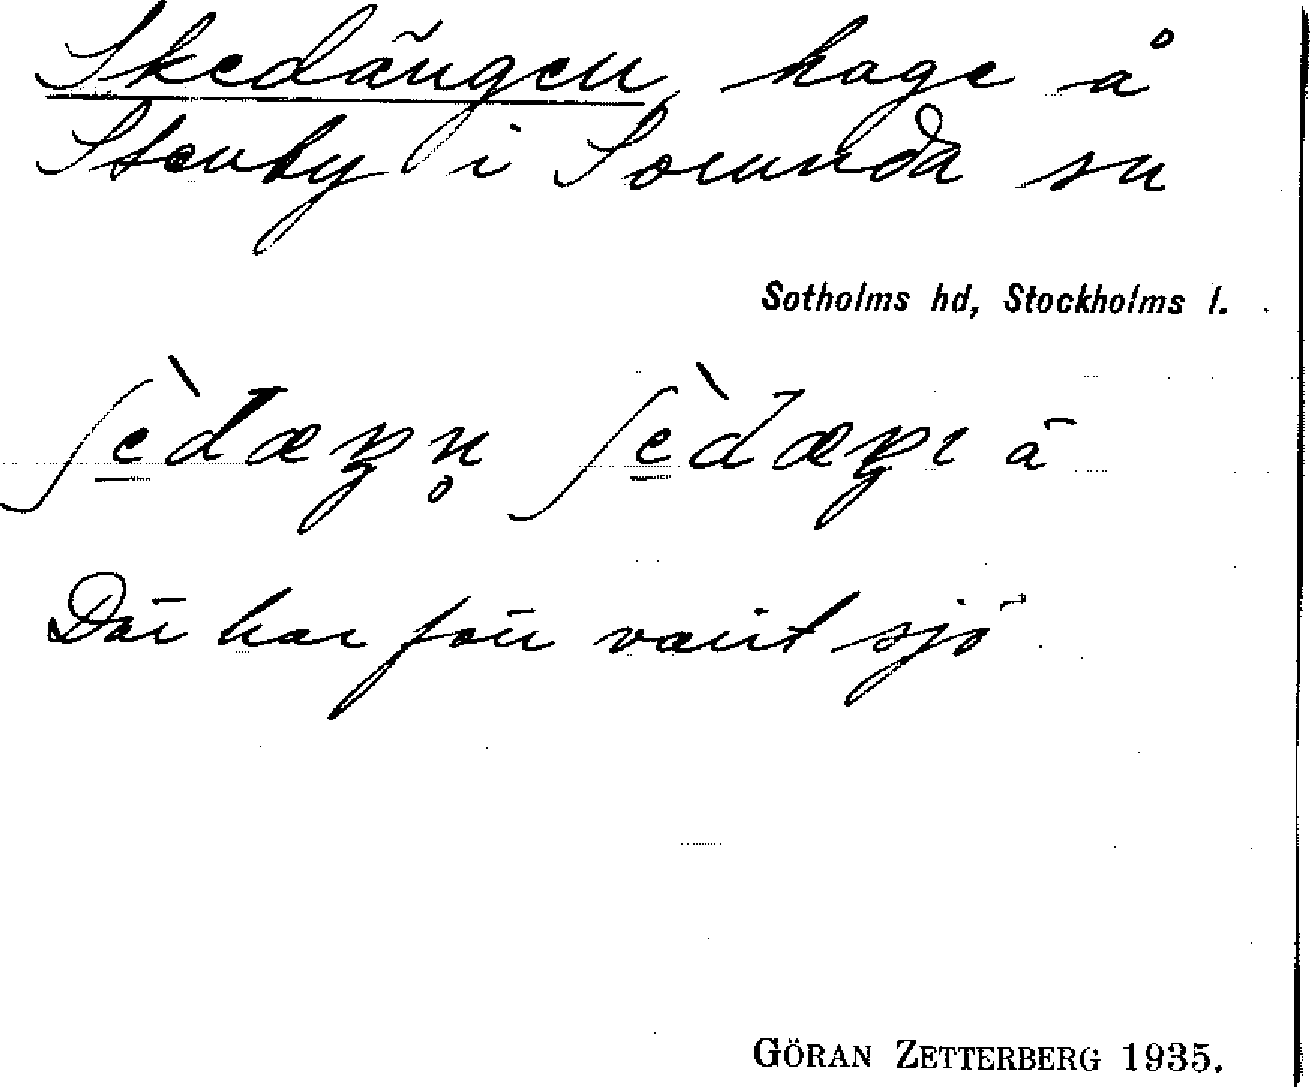 Skedängen, hage å
Stenby i Sorunda sn
Sotholms hd, Stockholms l.
Där har förr varit sjö.
GÖRAN ZETTERBERG 1935.